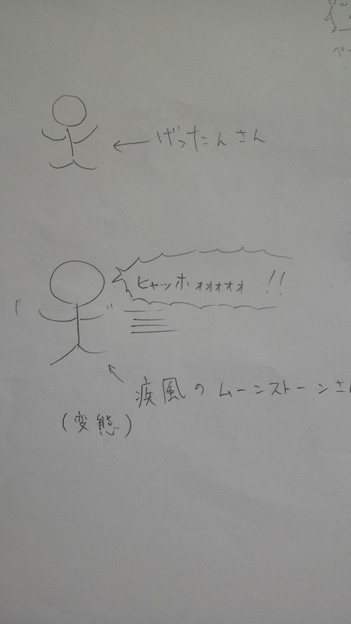 ペー
← げったんさん
ヒャッホォォォォォ!!
疾風のムーンストーンさん
(変態)